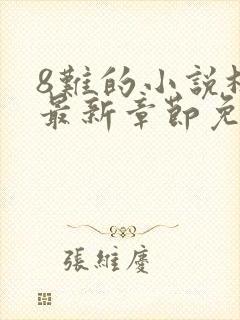 8難的小說
最新章節免
張維慶